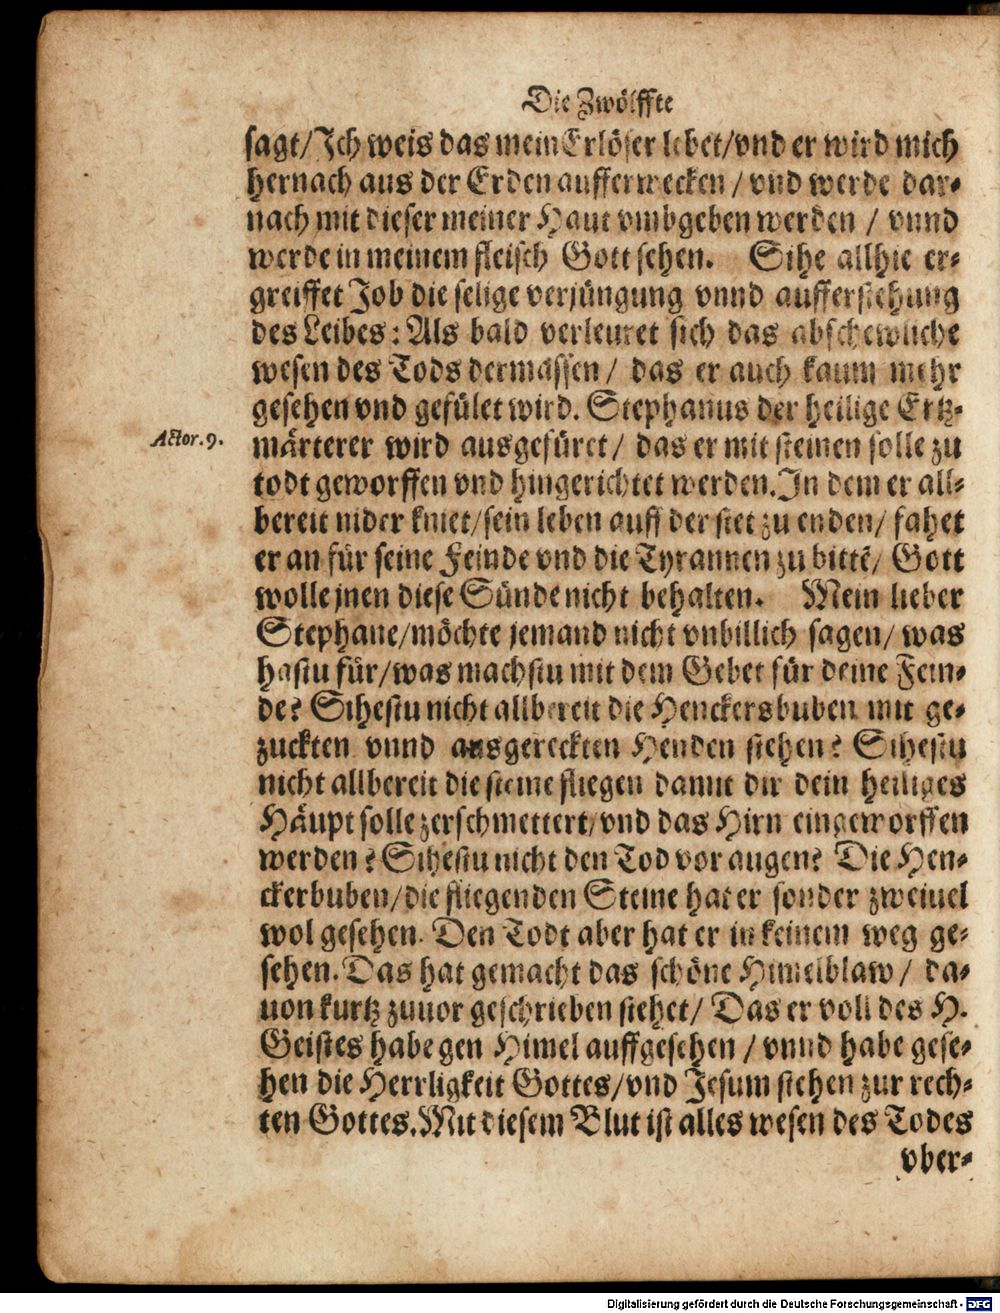 Die Zwölffte
sagt/Ich weis das mein Erlöser lebet/vnd er wird mich
hernach aus der Erden aufferwecken / vnd werde dar⸗
nach mit dieser meiner Haut vmbgeben werden / vnnd
werde in meinem fleisch Gott sehen. Sihe allhie er⸗
greiffet Job die selige verjüngung vnnd aufferstehung
des Leibes: Als bald verleuret sich das abschewliche
wesen des Tods dermassen / das er auch kaum mehr
gesehen vnd gefület wird. Stephanus der heilige Ertz⸗
Actor. 9.
märterer wird ausgefüret / das er mit steinen solle zu
todt geworffen vnd hingerichtet werden. In dem er all⸗
bereit nider kniet/sein leben auff der stet zu enden/ fahet
er an für seine Feinde vnd die Tyrannen zu bittē/ Gott
wolle jnen diese Sünde nicht behalten. Mein lieber
Stephane/möchte jemand nicht vnbillich sagen/ was
hastu für/was machstu mit dem Gebet für deine Fein⸗
de? Sihestu nicht allbereit die Henckersbuben mit ge⸗
zuckten vnnd ausgereckten Henden stehen? Sihestu
nicht allbereit die steine fliegen damit dir dein heiliges
Häupt solle zerschmettert/vnd das Hirn eingeworffen
werden? Sihestu nicht den Tod vor augen? Die Hen⸗
ckerbuben/die fliegenden Steine hat er sonder zweiuel
wol gesehen. Den Todt aber hat er in keinem weg ge⸗
sehen. Das hat gemacht das schöne Himelblaw / da⸗
uon kurtz zuuor geschrieben stehet/ Das er voll des H.
Geistes habe gen Himel auffgesehen / vnnd habe gese⸗
hen die Herrligkeit Gottes/vnd Jesum stehen zur rech⸗
ten Gottes. Mit diesem Blut ist alles wesen des Todes
vber⸗
Digitalisierung gefördert durch die Deutsche Forschungsgemeinschaft - DFG